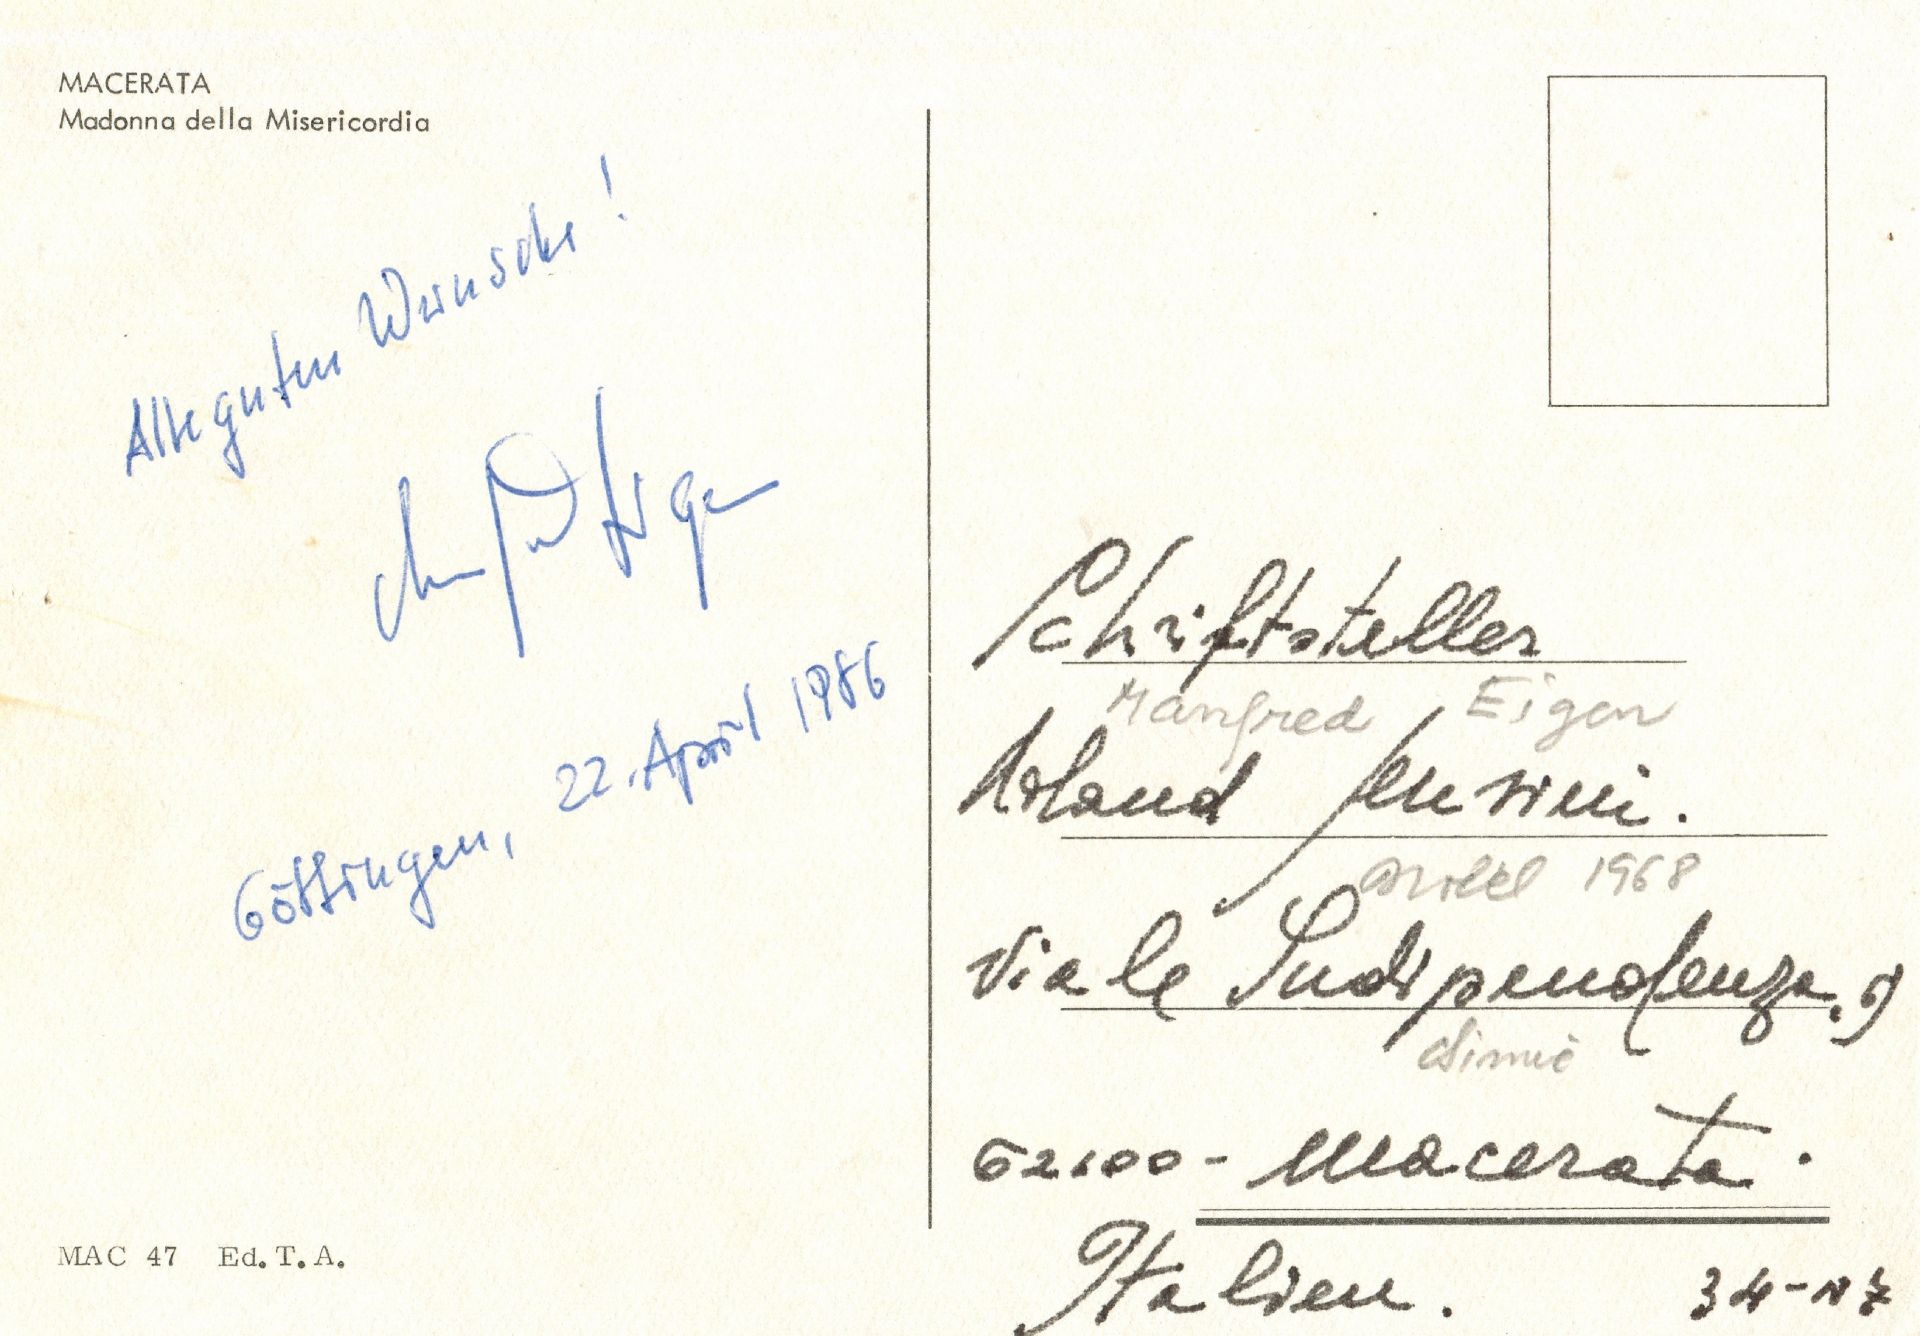 MACERATA
Madonna della Misericordia
Alle guten Wünsche!
Manfred Eigen
Göttingen, 22. April 1986
Schriftsteller
Manfred Eigen
Arland
1968
Viale Indipendenza,
62100 - Macerata.
Italien.
MAC 47 Ed. T. A.